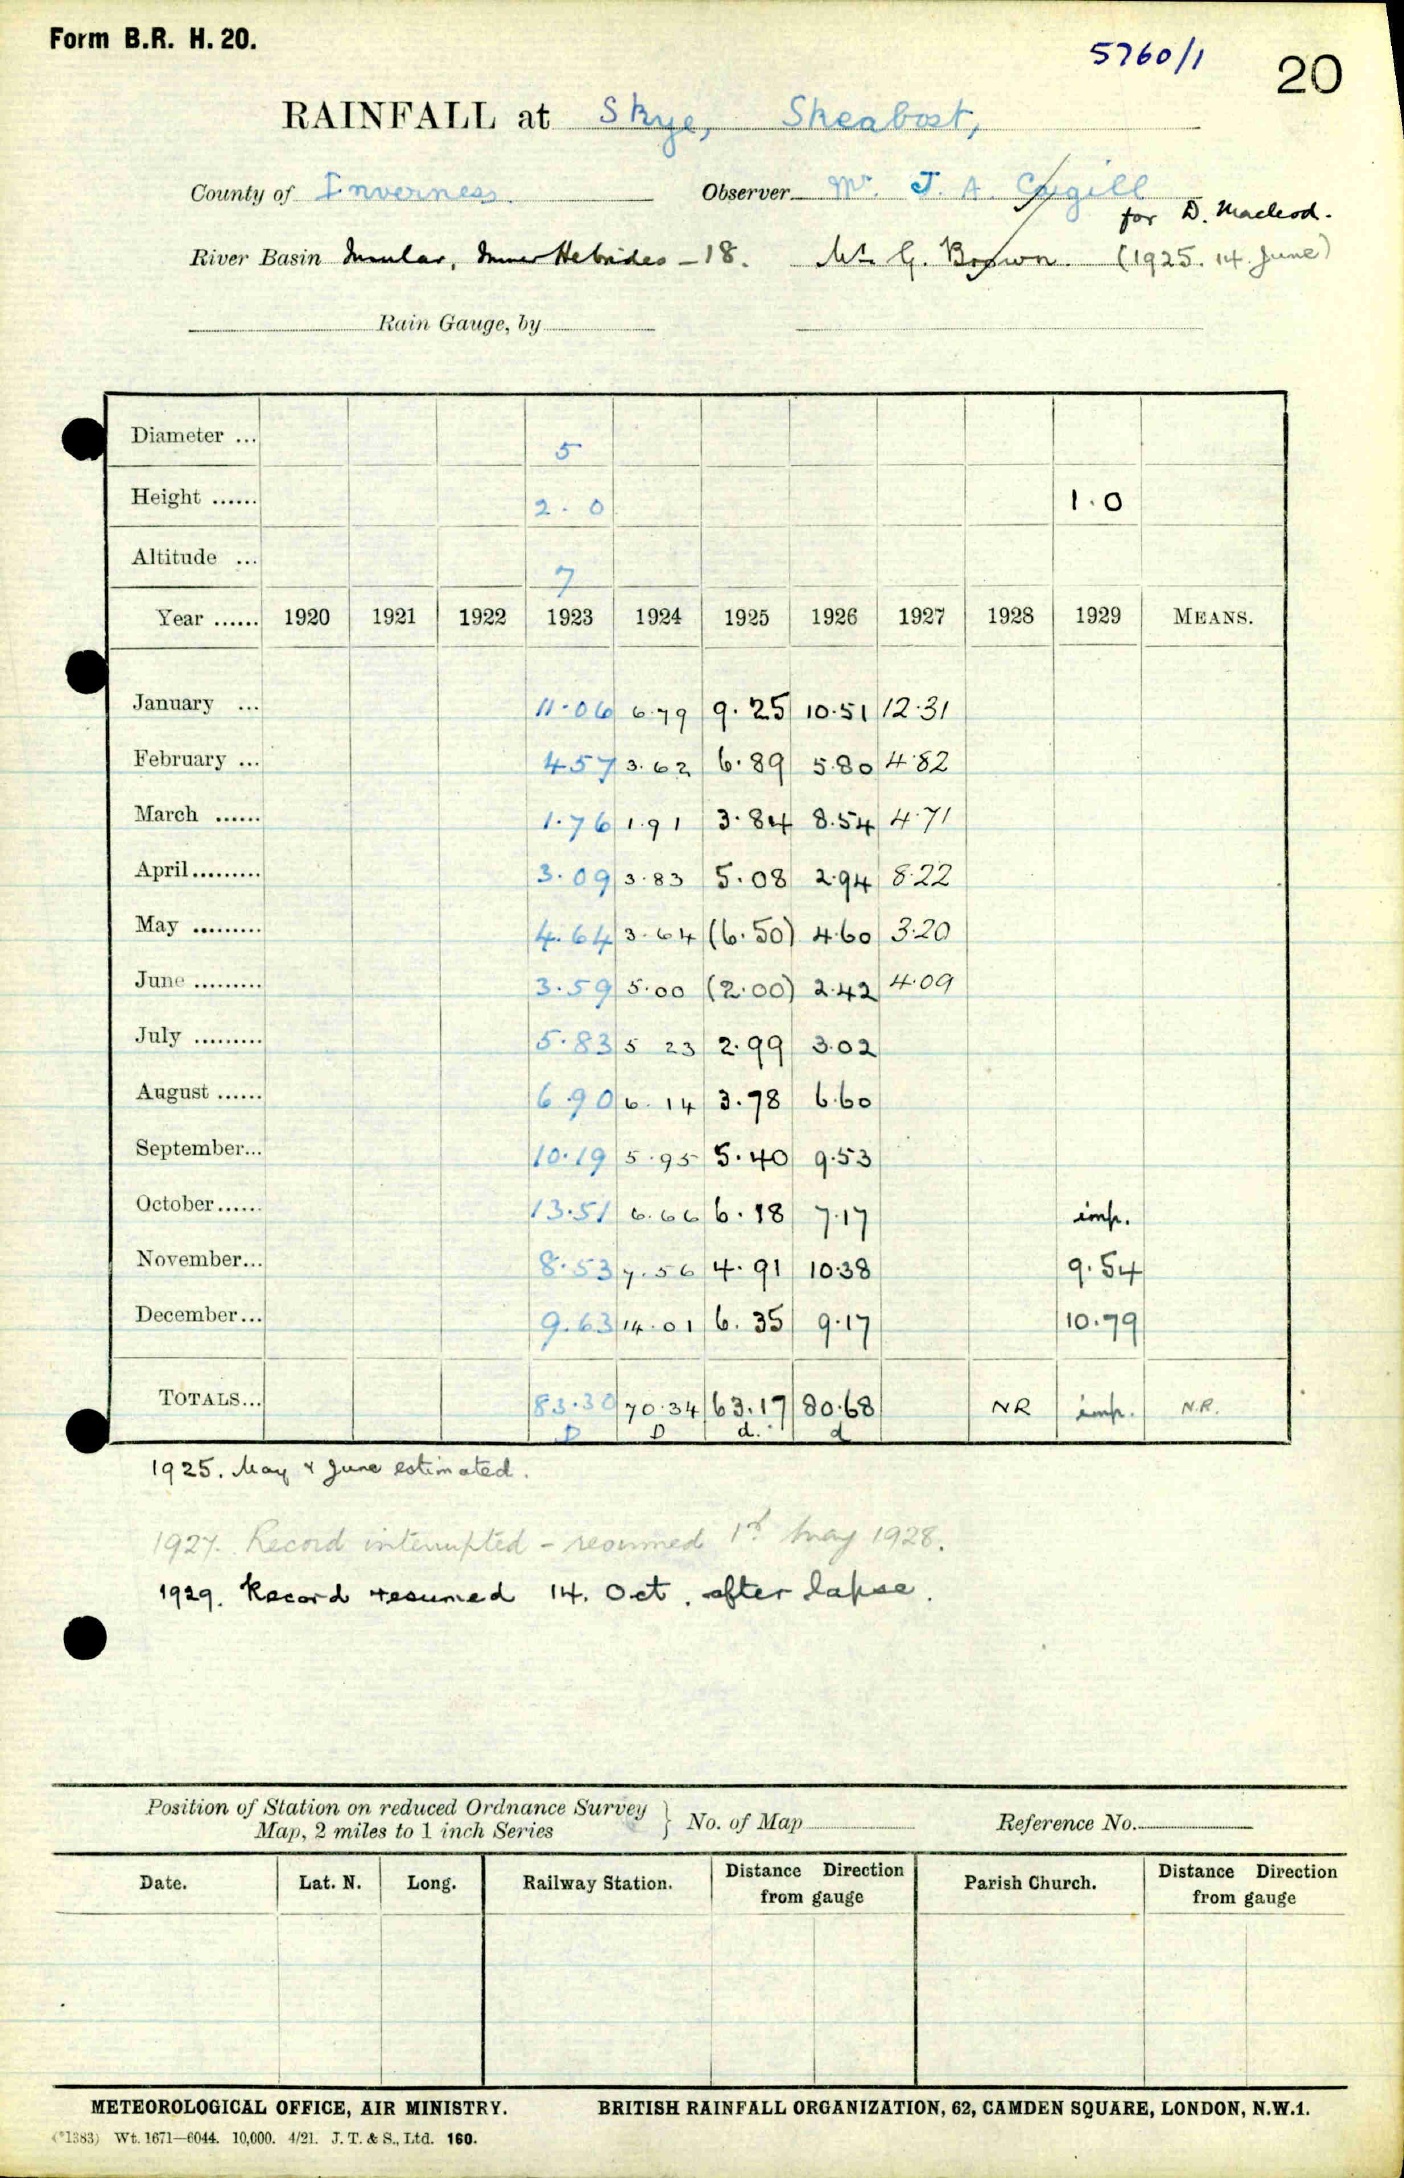 Form B.R. H. 20.
5760/1
20
RAINFALL at Skye, Skeabost,
County of Inverness. Observer Mr. J. A. Cugill
for D. Macleod.
River Basin Insular, Inner Hebrides - 18. Mr. G. Brown. (1925. 14. June)
Rain Gauge, by
Diameter ... 5
Height ...... 2.0 1.0
Altitude ... 7
Year ...... 1920 1921 1922 1923 1924 1925 1926 1927 1928 1929 MEANS.
January ... 11.06 6.79 9.25 10.51 12.31
February ... 4.57 3.62 6.89 5.80 4.82
March ...... 1.76 1.91 3.84 8.54 4.71
April......... 3.09 3.83 5.08 2.94 8.22
May ......... 4.64 3.64 (6.50) 4.60 3.20
June ......... 3.59 5.00 (2.00) 2.42 4.09
July ......... 5.83 5 23 2.99 3.02
August ...... 6.90 6.14 3.78 6.60
September... 10.19 5.95 5.40 9.53
October...... 13.51 6.66 6.18 7.17 imp.
November... 8.53 7.56 4.91 10.38 9.54
December... 9.63 14.01 6.35 9.17 10.79
TOTALS... 83.30 70.34 63.17 80.68 NR imp. N.R.
D D d. d
1925. May & June estimated.
1927. Record interrupted - resumed 1st May 1928.
1929. Record resumed 14. Oct. after lapse.
Position of Station on reduced Ordnance Survey
Map, 2 miles to 1 inch Series } No. of Map Reference No.
Date. Lat. N. Long. Railway Station. Distance Direction from gauge Parish Church. Distance Direction from gauge
METEOROLOGICAL OFFICE, AIR MINISTRY. BRITISH RAINFALL ORGANIZATION, 62, CAMDEN SQUARE, LONDON, N.W.1.
(*1383) Wt. 1671—6044. 10,000. 4/21. J. T. & S., Ltd. 160.